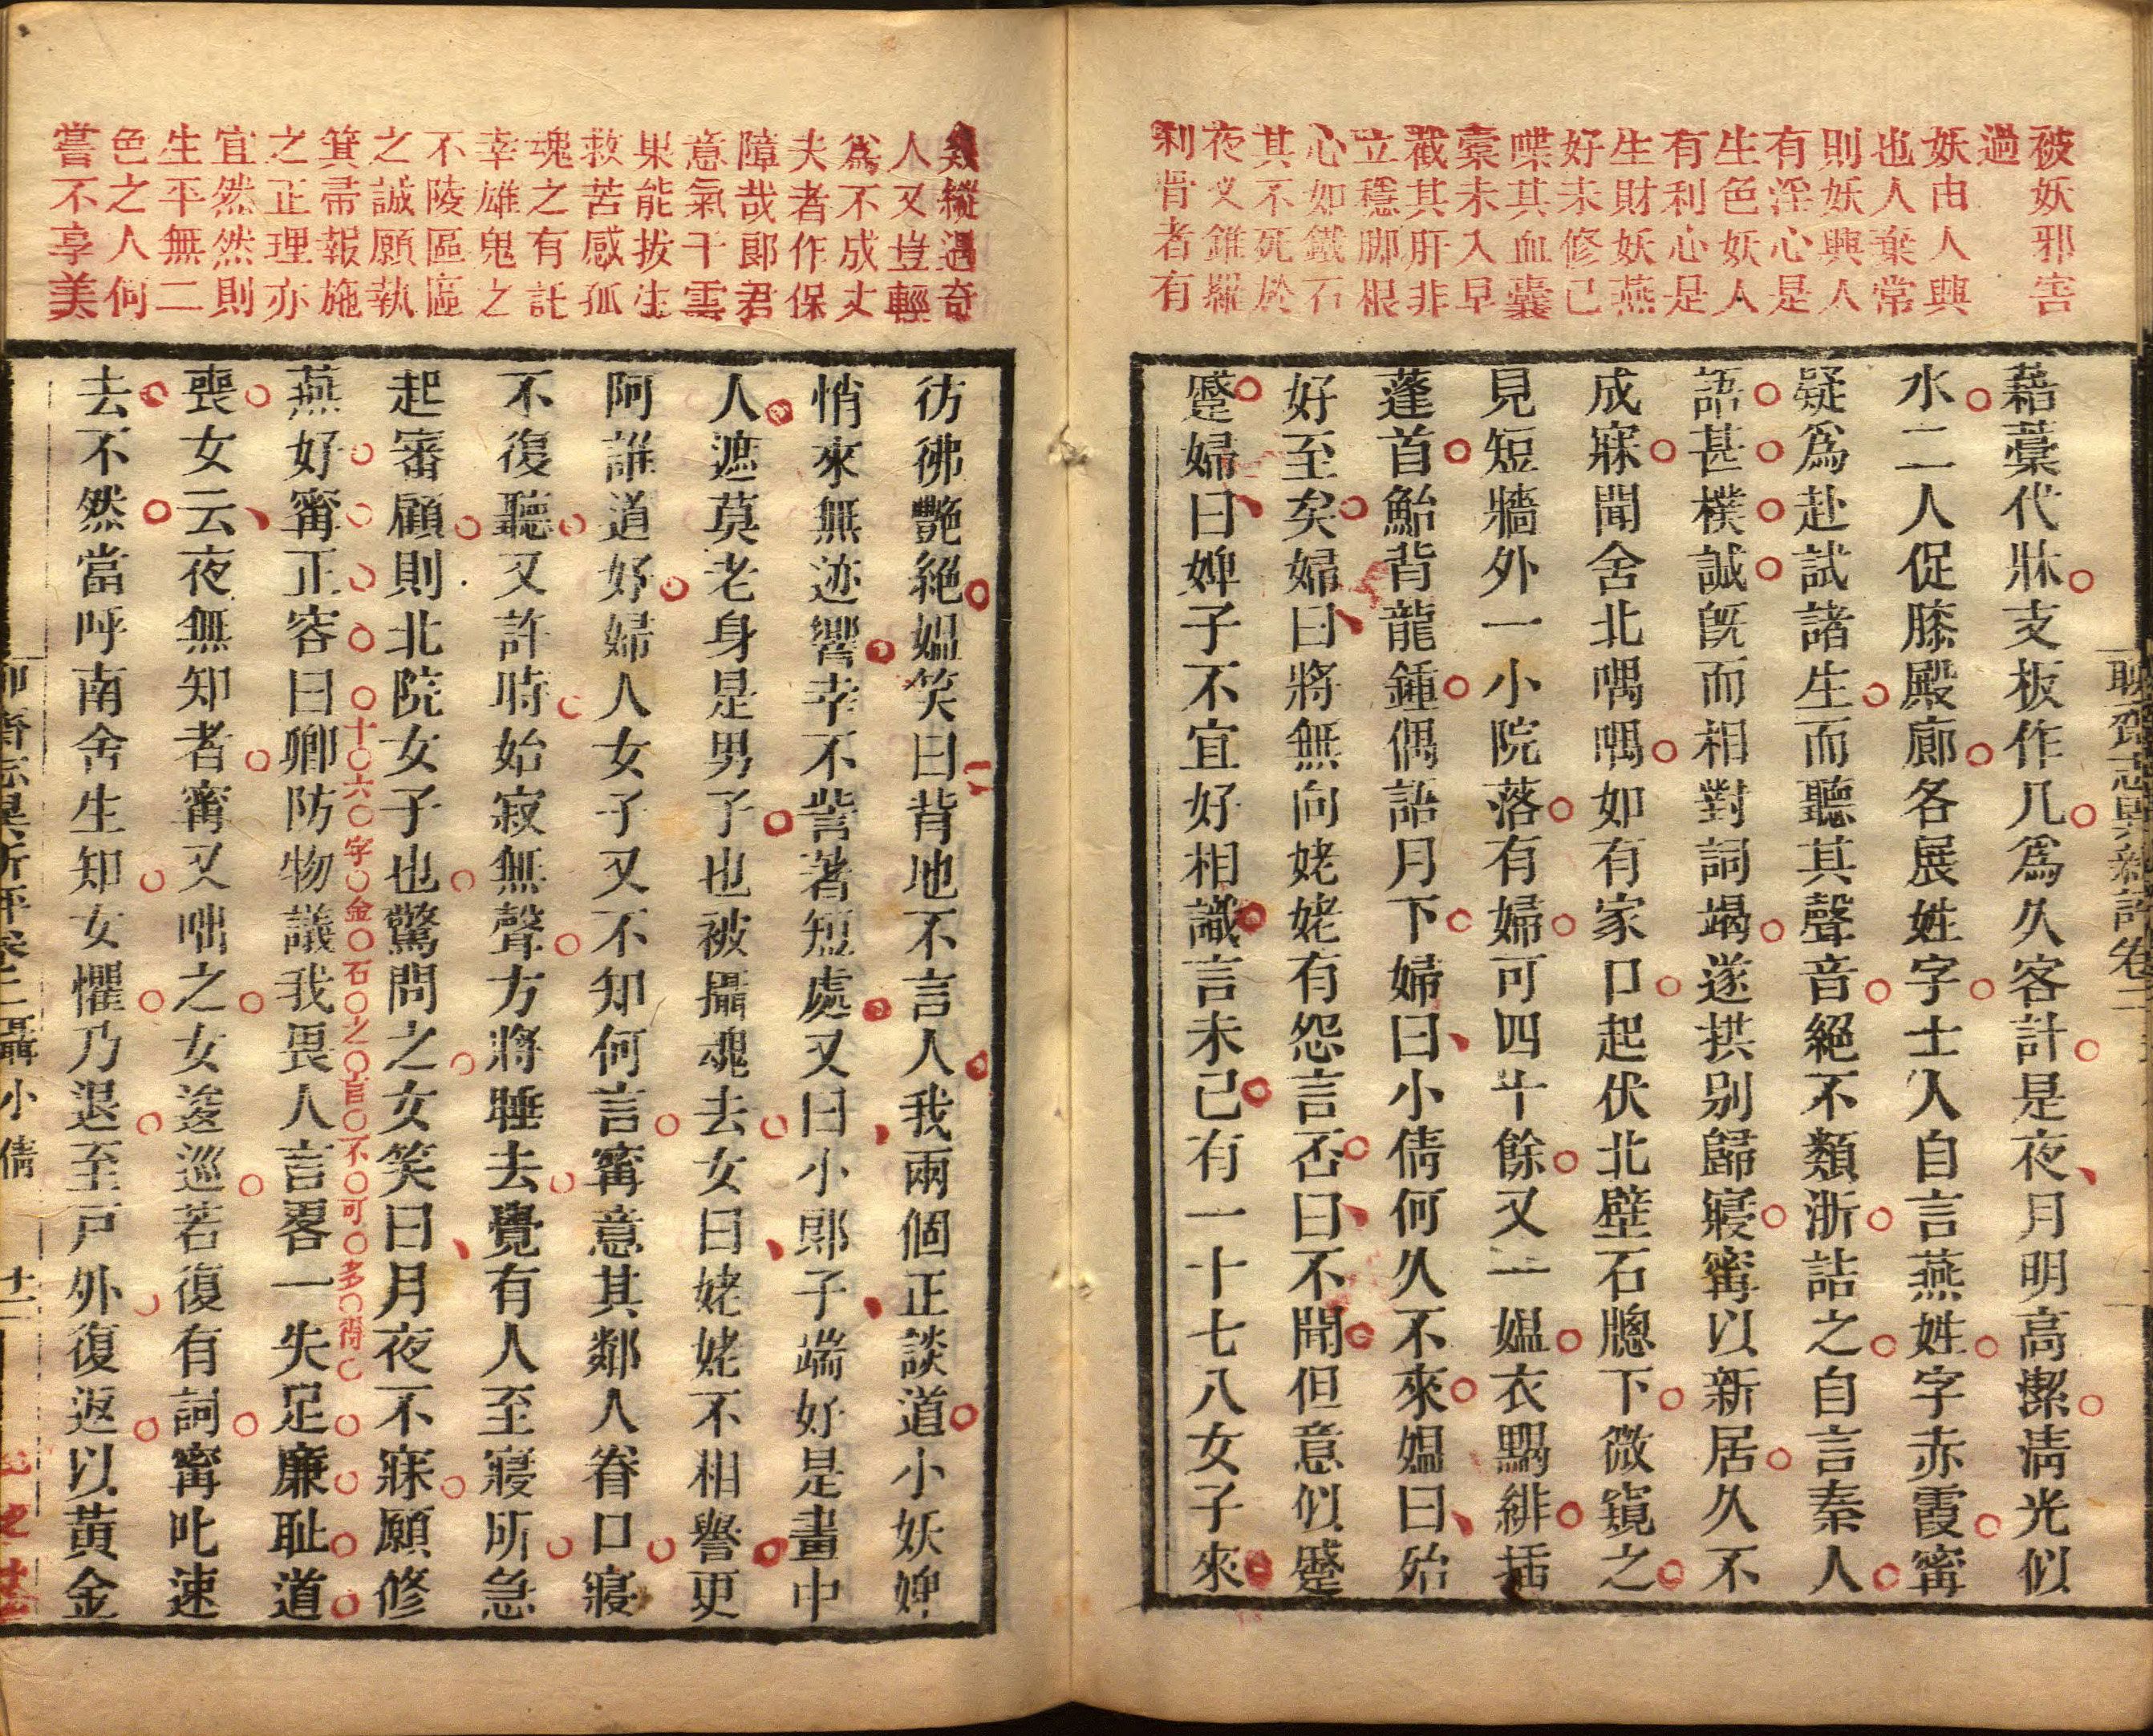 被妖邪害
過
妖由人興
也人棄常
則妖興人
有淫心是
生色妖人
有利心是
生財妖燕
好未修已
喋其血囊
橐未入早
截其肝非
立穩脚根
心如鐵石
其不死於
夜叉錐羅
刹骨者有
藉藁代牀支板作几爲久客計是夜月明高潔清光似
水二人促膝殿廊各展姓字士人自言燕姓字赤霞甯
疑爲赴試諸生而聽其聲音絕不類浙詰之自言秦人
語甚樸誠旣而相對詞竭遂拱別歸寢甯以新居久不
成寐聞舍北喁喁如有家口起伏北壁石牕下微窺之
見短牆外一小院落有婦可四十餘又一媪衣䵝緋插
蓬首鮐背龍鍾偶語月下婦曰小倩何久不來媪曰殆
好至矣婦曰將無向姥姥有怨言否曰不聞但意似蹙
蹙婦曰婢子不宜好相識言未已有一十七八女子來
聊齋志異新評卷二
幾縱遇奇
人又豈輕
爲不成丈
夫者作保
障哉郎君
意氣干雲
果能拔生
救苦感孤
魂之有託
幸雄鬼之
不陵區區
之誠願執
箕帚報施
之正理亦
宜然然則
生平無二
色之人何
嘗不享美
彷彿艷絕媪笑曰背地不言人我兩個正談道小妖婢
悄來無迹響幸不訾著短處又曰小郎子端好是畫中
人遮莫老身是男子也被攝魂去女曰姥姥不相譽更
阿誰道好婦人女子又不知何言甯意其鄰人眷口寢
不復聽又許時始寂無聲方將睡去覺有人至寢所急
起審顧則北院女子也驚問之女笑曰月夜不寐願修
燕好甯正容曰卿防物議我畏人言畧一失足廉耻道
十六字金石之言不可多得
喪女云夜無知者甯又咄之女逡巡若復有詞甯叱速
去不然當呼南舍生知女懼乃退至戸外復返以黃金
聊齋志異新評卷二聶小倩 十二